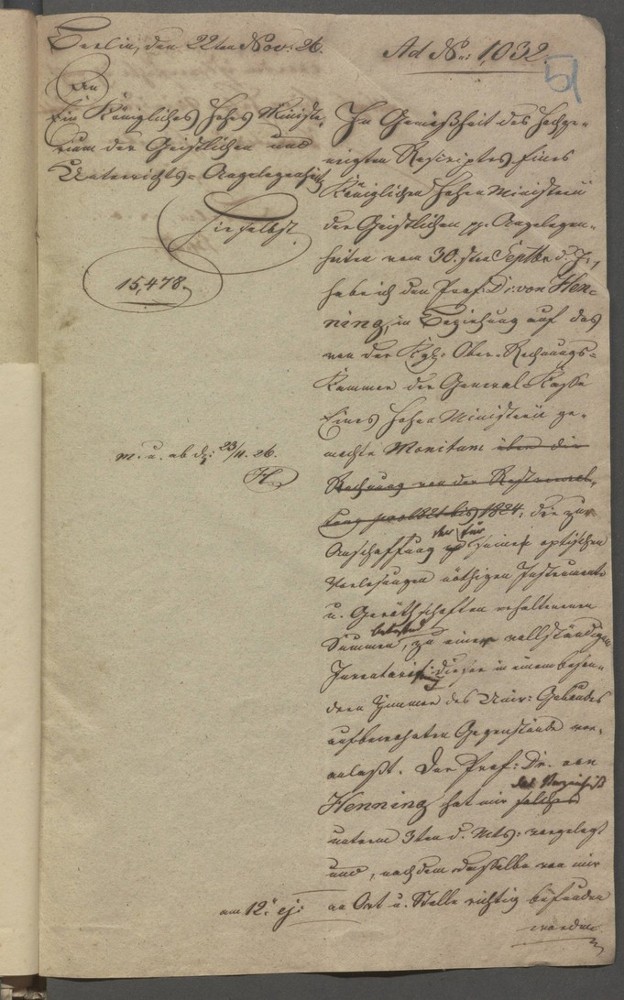 Berlin, den 22ten Nov: 26.
Ad No: 1,032.
51
An
Ein Königliches Hohes Ministe-
rium der Geistlichen und
Unterrichts-Angelegenheit
hieselbst
15,478.
m. u. ab d: 23/11. 26.
H
In Gemäßheit des hochge-
neigten Rescriptes Eines
Königlichen Hohen Ministerii
der Geistlichen pp. Angelegen-
heiten vom 30. sten Septbr d. J.,
habe ich den Prof: Dr: von Hen-
ning, in Beziehung auf das
von der Kgl: Ober-Rechnungs-
Kammer der General-Kasse
Eines Hohen Ministerii ge-
machte Monitum über die
Rechnung von der
1824, die zur
Anschaffung der für seine optischen
Vorlesungen nöthigen Instrumente
u. Geräthschaften erhaltenen
Summen betreffend, zu einem vollständigen
Inventario dieser in einem beson-
dern Zimmer des Univ: Gebäudes
aufbewahrten Gegenstände ver-
anlaßt. Der Prof: Dr. von
Henning hat mir solches das Verzeichniß
unterm 3ten d. Mts. vorgelegt
und, nachdem dasselbe von mir
am 12. ej: an Ort u. Stelle richtig befunden
worden